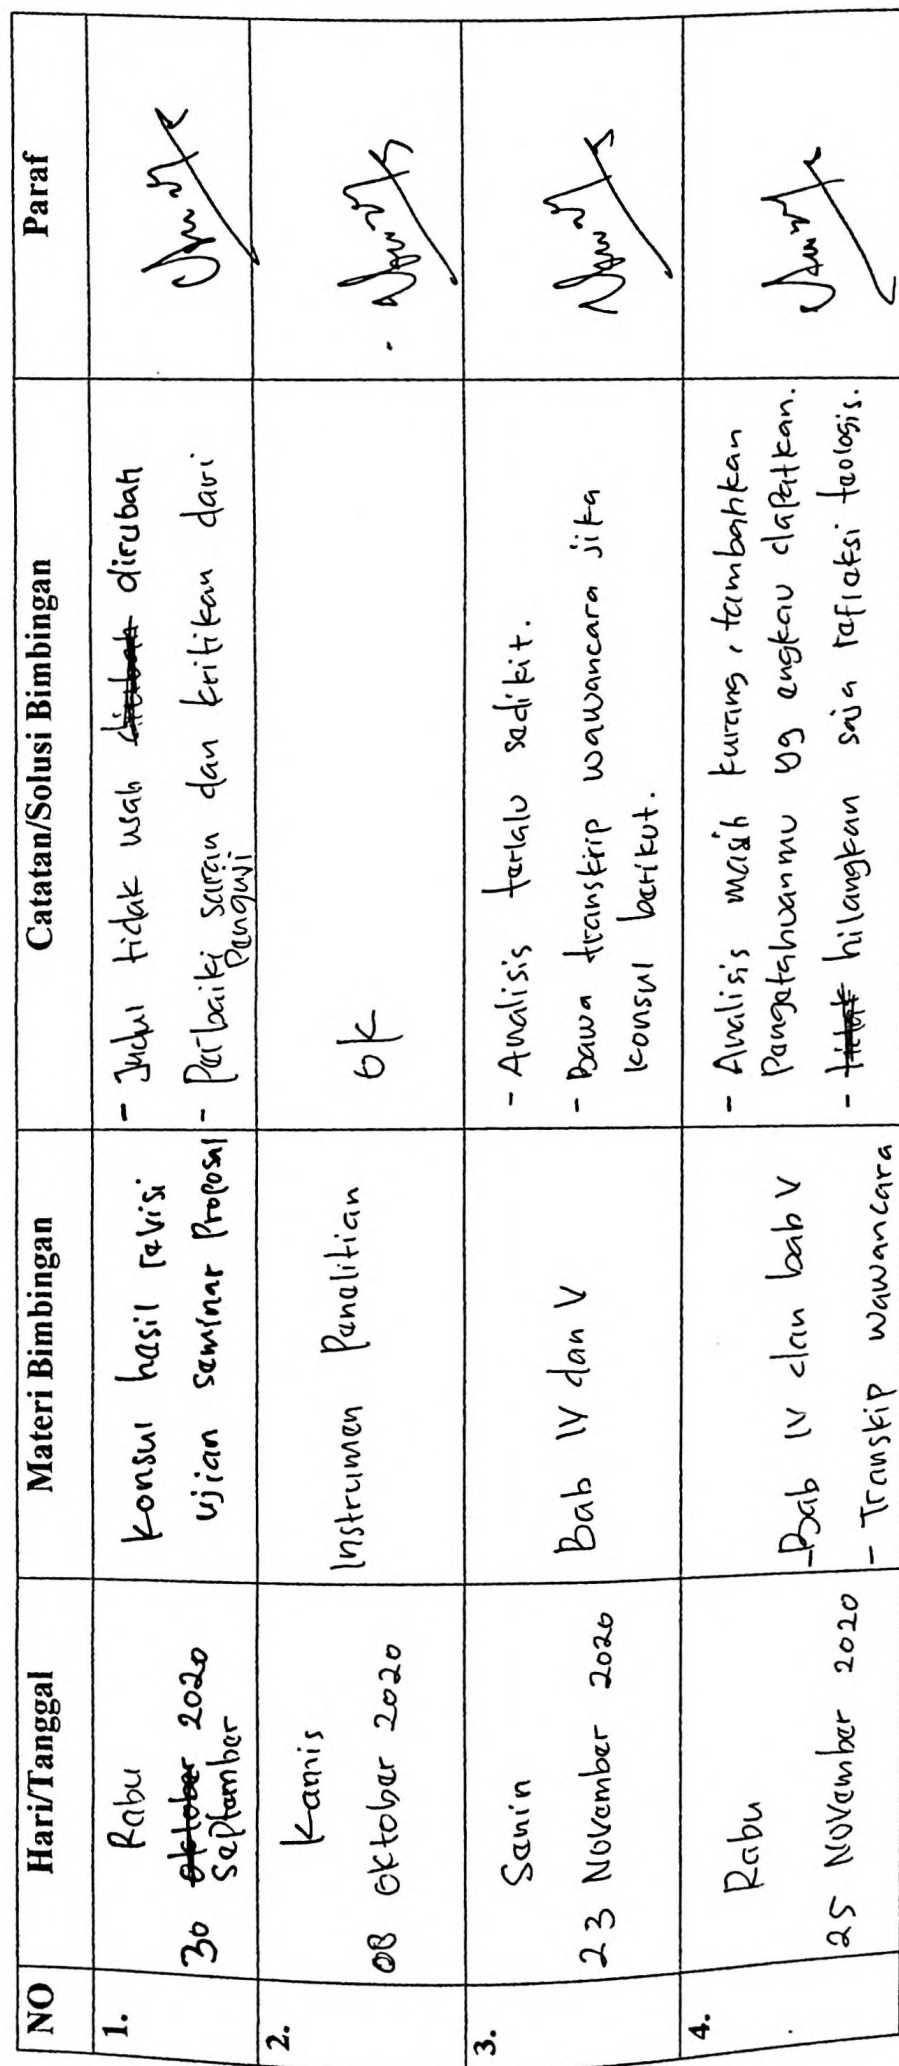 NO Hari/Tanggal Materi Bimbingan Catatan/Solusi Bimbingan Paraf
1.
Rabu
30 oktober 2020
September
Konsul hasil revisi
ujian seminar Proposal
- Judul tidak usah dirubah dirubah
- Perbaiki saran dan kritikan dari
Penguji
2.
Kamis
08 Oktober 2020
Instrumen Penelitian
ok
3.
Senin
23 November 2020
Bab IV dan V
- Analisis terlalu sedikit.
- Bawa transkrip wawancara jika
konsul berikut.
4.
Rabu
25 November 2020
- Bab IV dan bab V
- Transkip wawancara
- Analisis masih kurang, tambahkan
Pengetahuanmu yg engkau dapatkan.
- tidak hilangkan saja refleksi teologis.